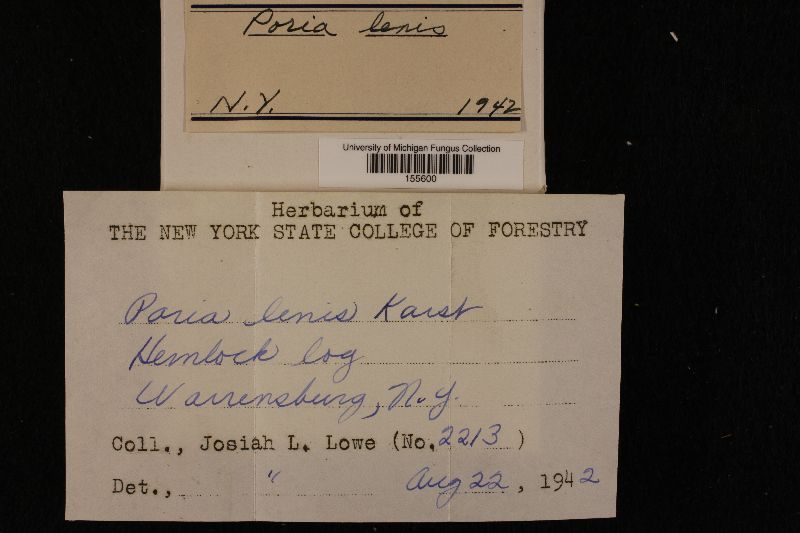 Poria lenis
N.Y. 1942
University of Michigan Fungus Collection
155600
Herbarium of
THE NEW YORK STATE COLLEGE OF FORESTRY
Poria lenis Karst
Hemlock log
Warrensburg, N.Y.
Coll., Josiah L. Lowe (No. 2213 )
Det., " Aug 22, 1942